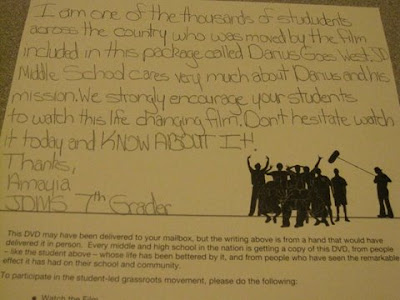 I am one of the thousands of stududents
across the country who was moved by the film
included in this package called Darius Goes West. JD
Middle School cares very much about Darius and his
mission. We strongly encourage your students
to watch this life changing film. Don't hesitate watch
it today and KNOW ABOUT It!
Thanks,
Amayia
JDMS 7th Grader
This DVD may have been delivered to your mailbox, but the writing above is from a hand that would have
delivered it in person. Every middle and high school in the nation is getting a copy of this DVD, from people
– like the student above – whose life has been bettered by it, and from people who have seen the remarkable
effect it has had on their school and community.
To participate in the student-led grassroots movement, please do the following:
• Watch the Film